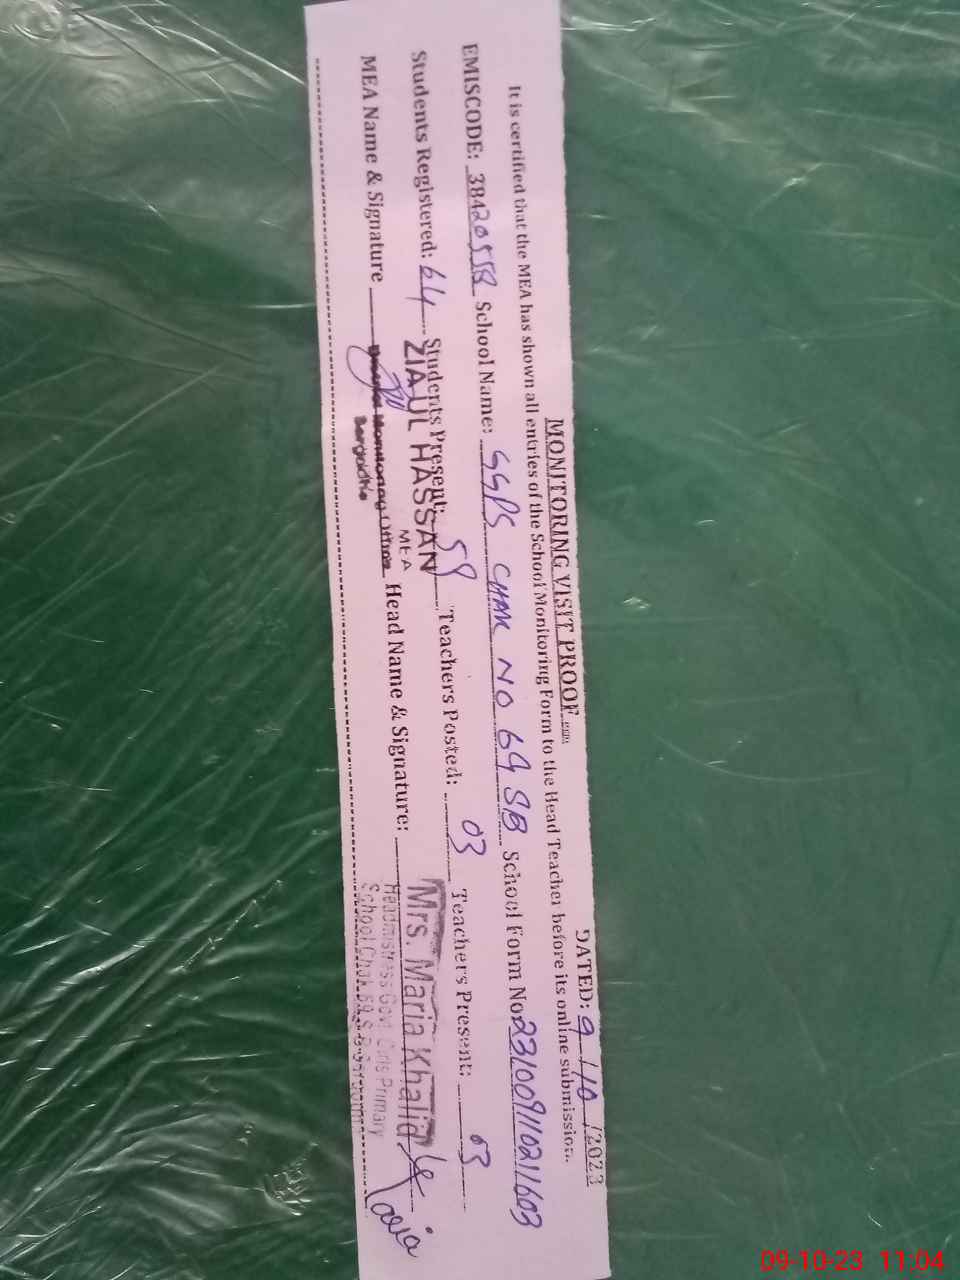 MONITORING VISIT PROOF
DATED: 9/10/2023
It is certified that the MEA has shown all entries of the School Monitoring Form to the Head Teacher before its online submission.
EMISCODE: School Name: GGPS CHAK NO 69 SB School Form No: 231009110211603
Students Registered: 64 Students Present: 59 Teachers Posted: 03 Teachers Present: 03
ZIA UL HASSAN
MEA
MEA Name & Signature Head Name & Signature: Mrs. Maria Khalid
Monitoring Office
Sargodha
Headmistress Govt. Girls Primary
School Chak 69 S.B.
09-10-23 11:04